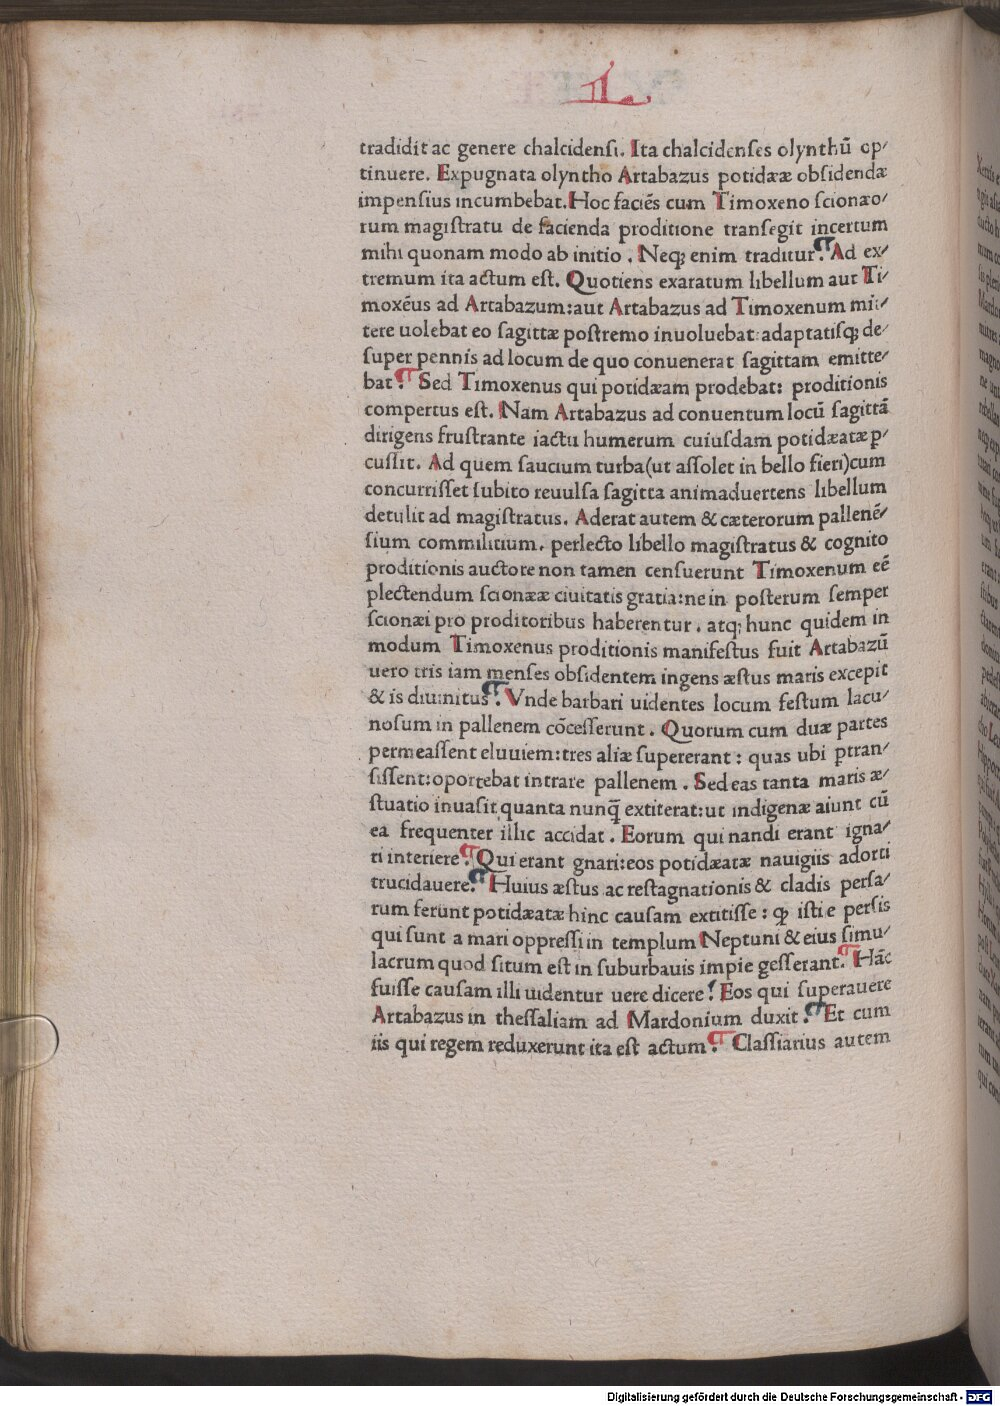 L
tradidit ac genere chalcidensi. Ita chalcidenses olynthū op/
tinuere. Expugnata olyntho Artabazus potidææ obsidendæ
impensius incumbebat. Hoc faciēs cum Timoxeno scionæo/
rum magistratu de facienda proditione transegit incertum
mihi quonam modo ab initio. Neq; enim traditur. Ad ex/
tremum ita actum est. Quotiens exaratum libellum aut Ti/
moxēus ad Artabazum: aut Artabazus ad Timoxenum mit/
tere uolebat eo sagittæ postremo inuoluebat: adaptatisq; de/
super pennis ad locum de quo conuenerat sagittam emitte/
bat. Sed Timoxenus qui potidæam prodebat: proditionis
compertus est. Nam Artabazus ad conuentum locū sagittā
dirigens frustrante iactu humerum cuiusdam potidæatæ p/
cussit. Ad quem saucium turba(ut assolet in bello fieri)cum
concurrisset subito reuulsa sagitta animaduertens libellum
detulit ad magistratus. Aderat autem & cæterorum pallenē/
sium commilitium. perlecto libello magistratus & cognito
proditionis auctore non tamen censuerunt Timoxenum eē
plectendum scionææ ciuitatis gratia: ne in posterum semper
scionæi pro proditoribus haberentur. atq; hunc quidem in
modum Timoxenus proditionis manifestus fuit Artabazū
uero tris iam menses obsidentem ingens æstus maris excepit
& is diuinitus. Vnde barbari uidentes locum festum lacu/
nosum in pallenem cōcesserunt. Quorum cum duæ partes
permeassent eluuiem: tres aliæ supererant: quas ubi ptran/
sissent: oportebat intrare pallenem. Sed eas tanta maris æ/
stuatio inuasit quanta nunq̄ extiterat: ut indigenæ aiunt cū
ea frequenter illic accidat. Eorum qui nandi erant igna/
ri interiere. Qui erant gnari: eos potidæatæ nauigiis adorti
trucidauere. Huius æstus ac restagnationis & cladis persa/
rum ferunt potidæatæ hinc causam extitisse: ꝙ isti e persis
qui sunt a mari oppressi in templum Neptuni & eius simu/
lacrum quod situm est in suburbauis impie gesserant. Hāc
fuisse causam illi uidentur uere dicere. Eos qui superauere
Artabazus in thessaliam ad Mardonium duxit. Et cum
iis qui regem reduxerunt ita est actum. Classiarius autem
Digitalisierung gefördert durch die Deutsche Forschungsgemeinschaft - DFG